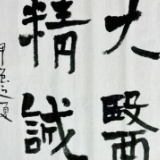 大醫
精誠